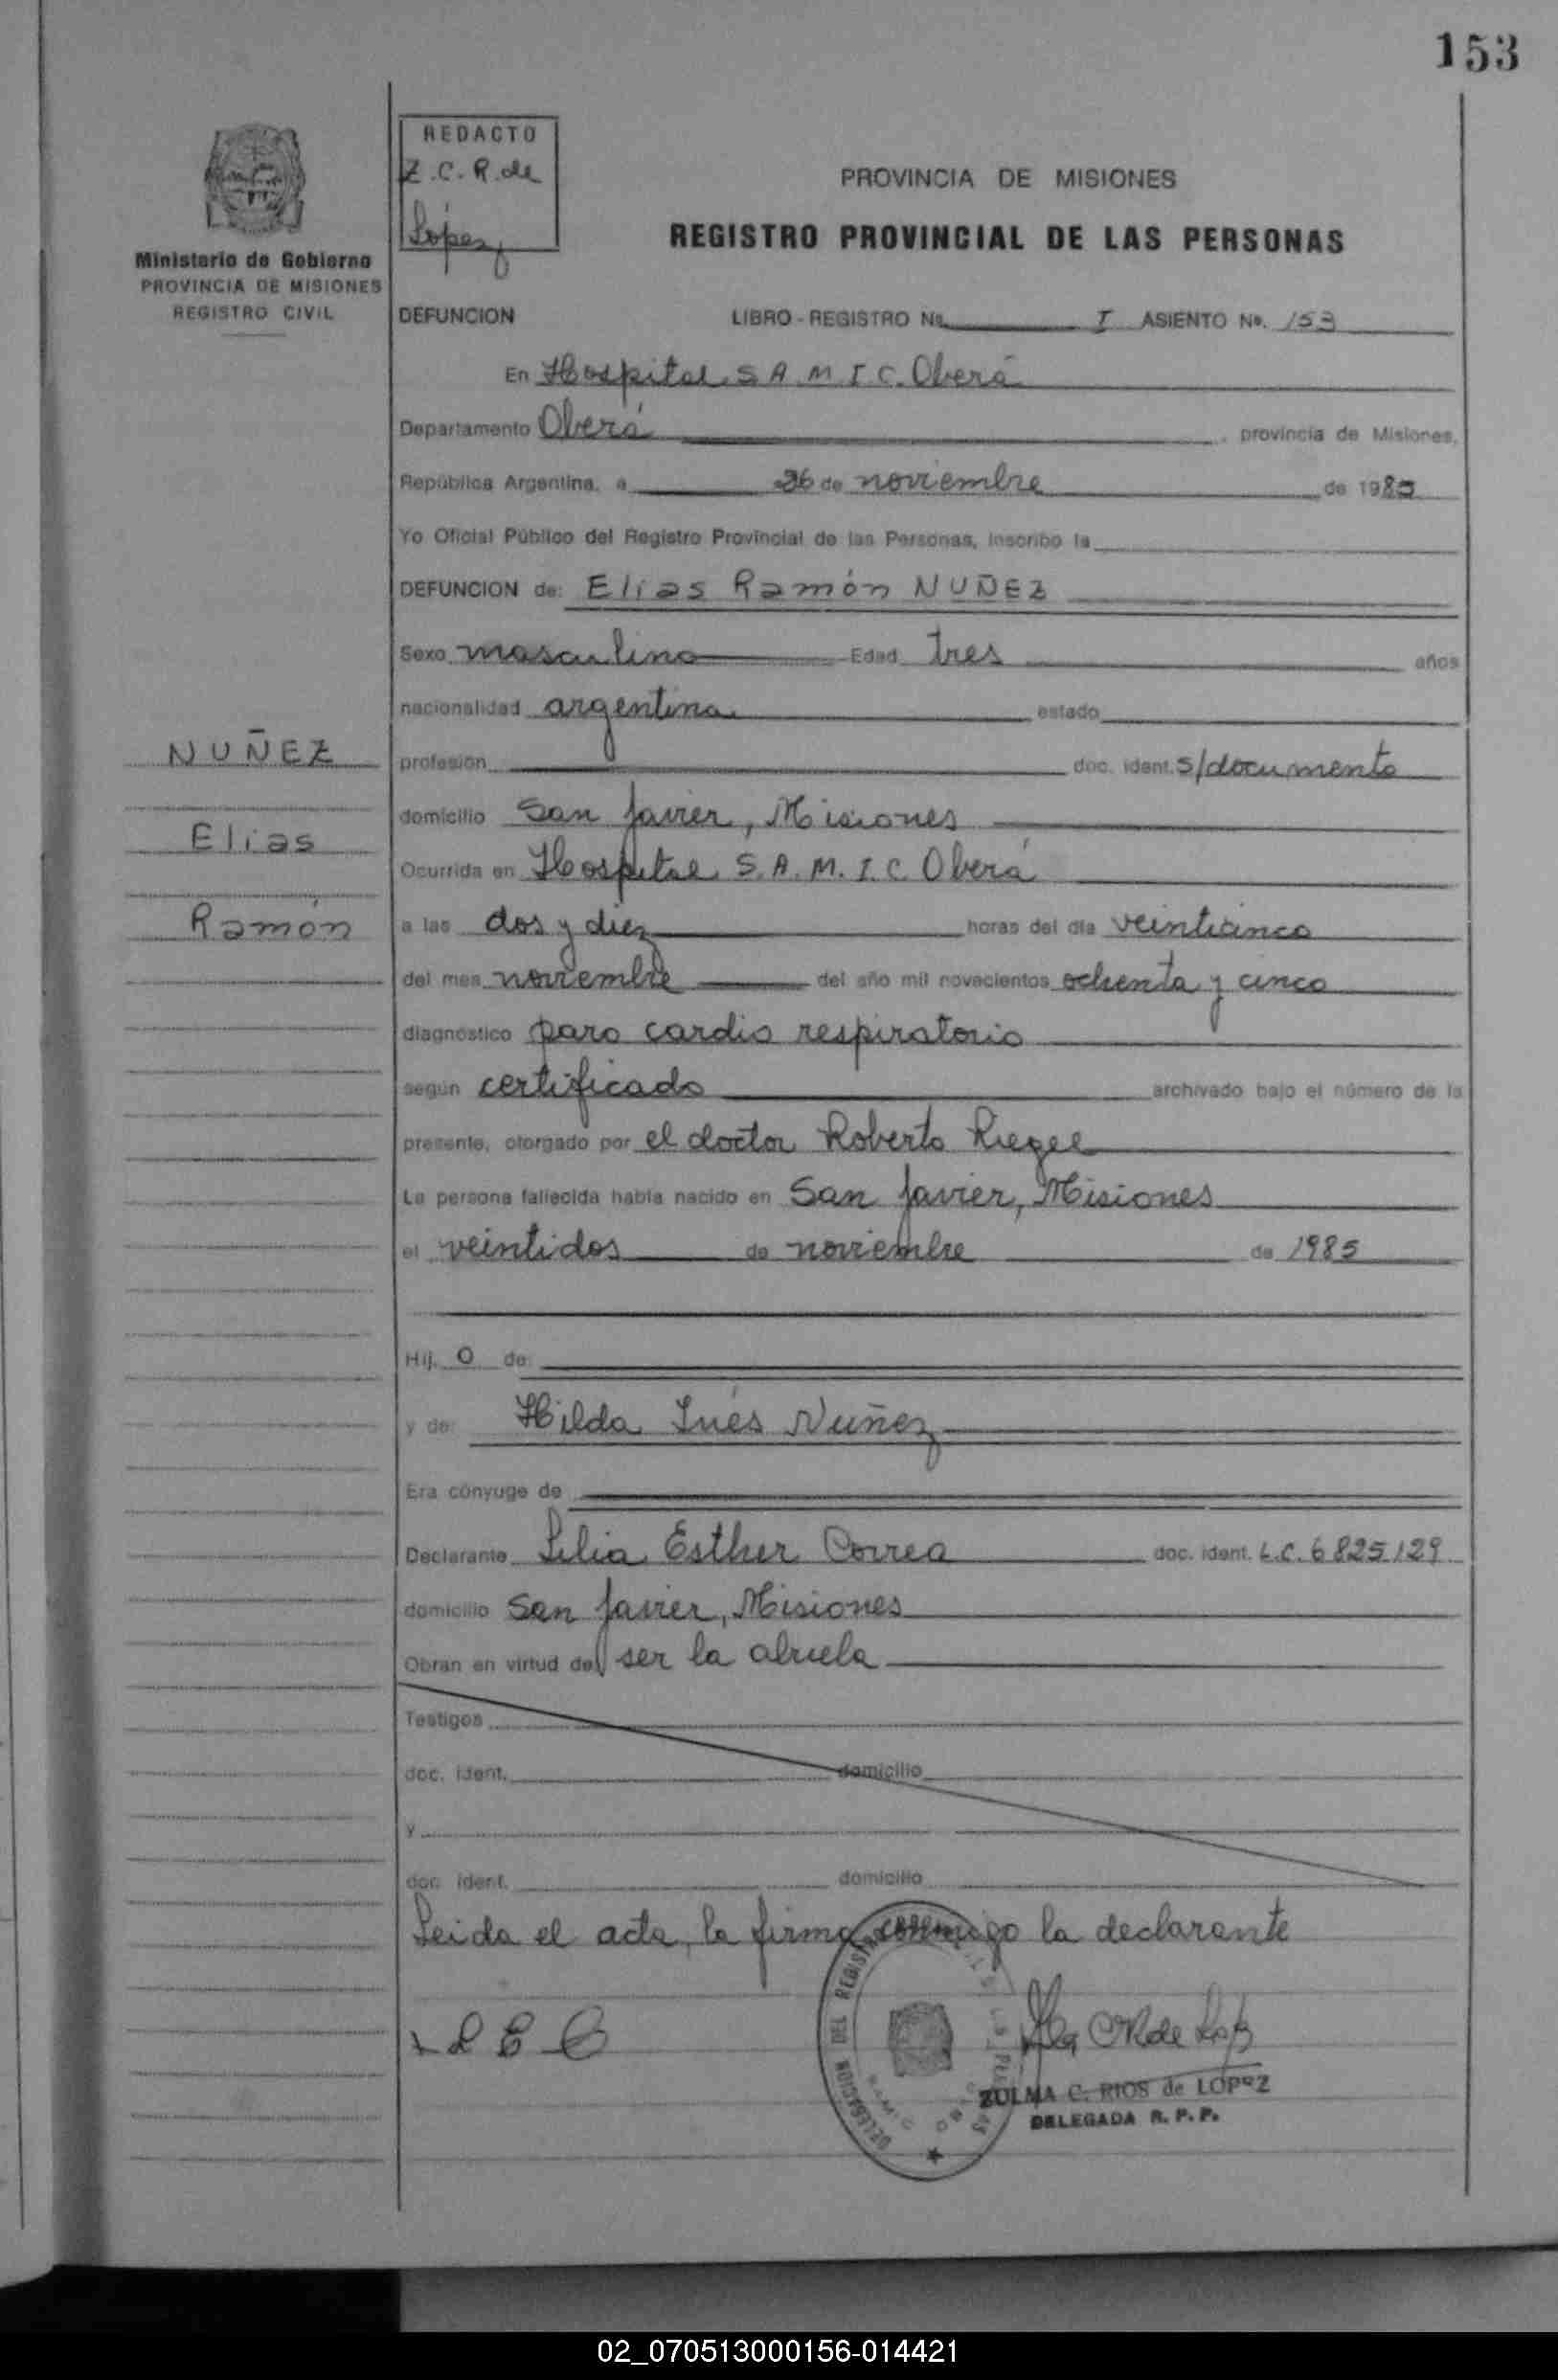 153
REDACTO
Z.C.R. de
López
Ministerio de Gobierno
PROVINCIA DE MISIONES
REGISTRO CIVIL
PROVINCIA DE MISIONES
REGISTRO PROVINCIAL DE LAS PERSONAS
DEFUNCION LIBRO - REGISTRO No. I ASIENTO No. 153
En Hospital S.A.M.I.C. Oberá
Departamento Oberá, provincia de Misiones,
República Argentina, a 26 de noviembre de 1985
Yo Oficial Público del Registro Provincial de las Personas, inscribo la
DEFUNCION de: Elias Ramón NUÑEZ
Sexo masculino Edad tres años
nacionalidad argentina estado
profesión doc. ident. s/documento
domicilio San Javier, Misiones
Ocurrida en Hospital S.A.M.I.C Oberá
a las dos y diez horas del día veinticinco
del mes noviembre del año mil novecientos ochenta y cinco
diagnóstico paro cardio respiratorio
según certificado archivado bajo el número de la
presente, otorgado por el doctor Roberto Riegel
La persona fallecida había nacido en San Javier, Misiones
el veintidos de noviembre de 1985
Hij o de:
y de: Hilda Inés Nuñez
Era cónyuge de
Declarante Lilia Esther Correa doc. ident. L.C. 6825129
domicilio San Javier, Misiones
Obran en virtud de ser la abuela
Testigos
doc. ident. domicilio
y
doc. ident. domicilio
Leida el acta, la firma conmigo la declarante
L E C
DELEGACION DEL REGISTRO
ZULMA C. RIOS de LOPEZ
DELEGADA R. P. P.
NUÑEZ
Elias
Ramón
02_070513000156-014421